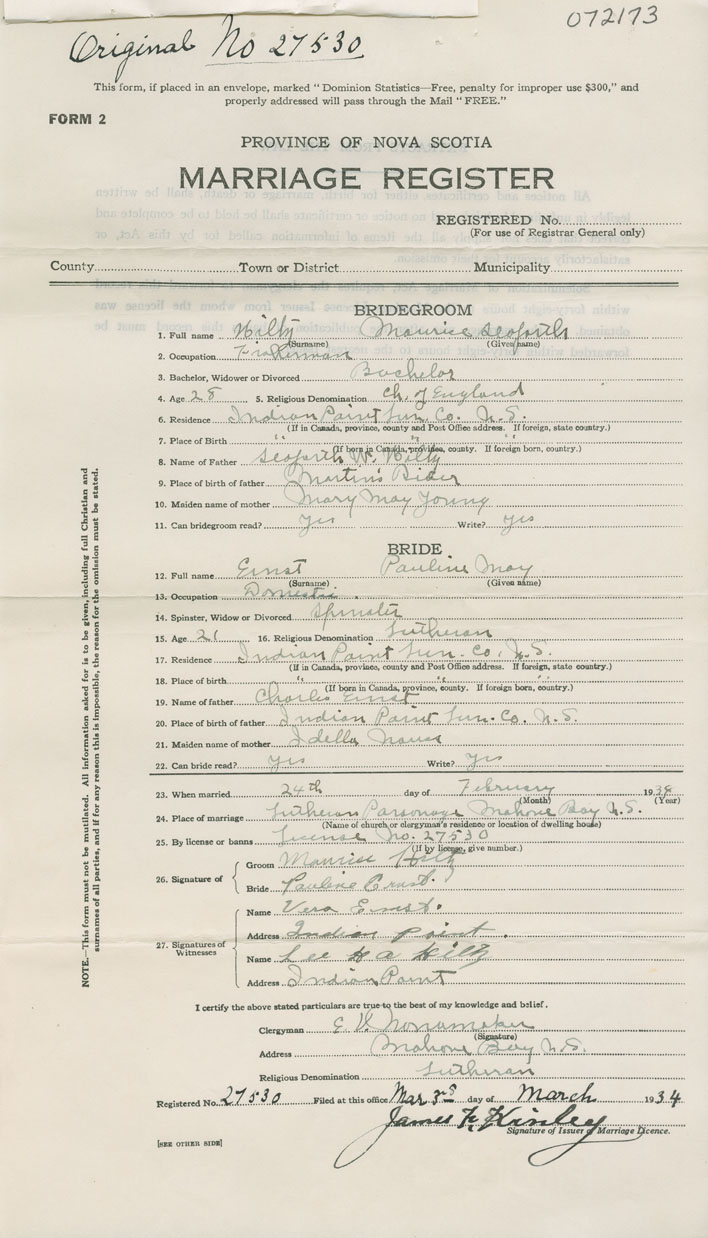 072173
Original No 27530
This form, if placed in an envelope, marked "Dominion Statistics—Free, penalty for improper use $300," and
properly addressed will pass through the Mail "FREE."
FORM 2
PROVINCE OF NOVA SCOTIA
MARRIAGE REGISTER
REGISTERED No.
(For use of Registrar General only)
County Town or District Municipality
BRIDEGROOM
1. Full name Hiltz Maurice Seaforth
(Surname) (Given name)
2. Occupation Fisherman
3. Bachelor, Widower or Divorced Bachelor
4. Age 28 5. Religious Denomination Ch. of England
6. Residence Indian Point Lun. Co. N.S.
(If in Canada, province, county and Post Office address. If foreign, state country.)
7. Place of Birth " " "
(If born in Canada, province, county. If foreign born, country.)
8. Name of Father Seaforth W. Hiltz
9. Place of birth of father Martin's River
10. Maiden name of mother Mary May Young
11. Can bridegroom read? yes Write? yes
BRIDE
12. Full name Ernst Pauline May
(Surname) (Given name)
13. Occupation Domestic
14. Spinster, Widow or Divorced Spinster
15. Age 21 16. Religious Denomination Lutheran
17. Residence Indian Point Lun. Co. N.S.
(If in Canada, province, county and Post Office address. If foreign, state country.)
18. Place of birth " " "
(If born in Canada, province, county. If foreign born, country.)
19. Name of father Charles Ernst
20. Place of birth of father Indian Point Lun. Co. N.S.
21. Maiden name of mother Idella
22. Can bride read? yes Write? yes
23. When married 24th day of February 1934
(Month) (Year)
24. Place of marriage Lutheran Parsonage Mahone Bay N.S.
(Name of church or clergyman's residence or location of dwelling house)
25. By license or banns License No. 27530
(If by license, give number.)
26. Signature of
Groom Maurice Hiltz
Bride Pauline Ernst.
27. Signatures of Witnesses
Name Vera Ernst.
Address Indian point.
Name Lee Hiltz
Address Indian Point
I certify the above stated particulars are true to the best of my knowledge and belief.
Clergyman E. V. Nonamaker
(Signature)
Address Mahone Bay N.S.
Religious Denomination Lutheran
Registered No. 27530 Filed at this office Mar 3rd day of March 1934
James F. Kinley
Signature of Issuer of Marriage Licence.
[SEE OTHER SIDE]
NOTE.—This form must not be mutilated. All information asked for is to be given, including full Christian and
surnames of all parties, and if for any reason this is impossible, the reason for the omission must be stated.